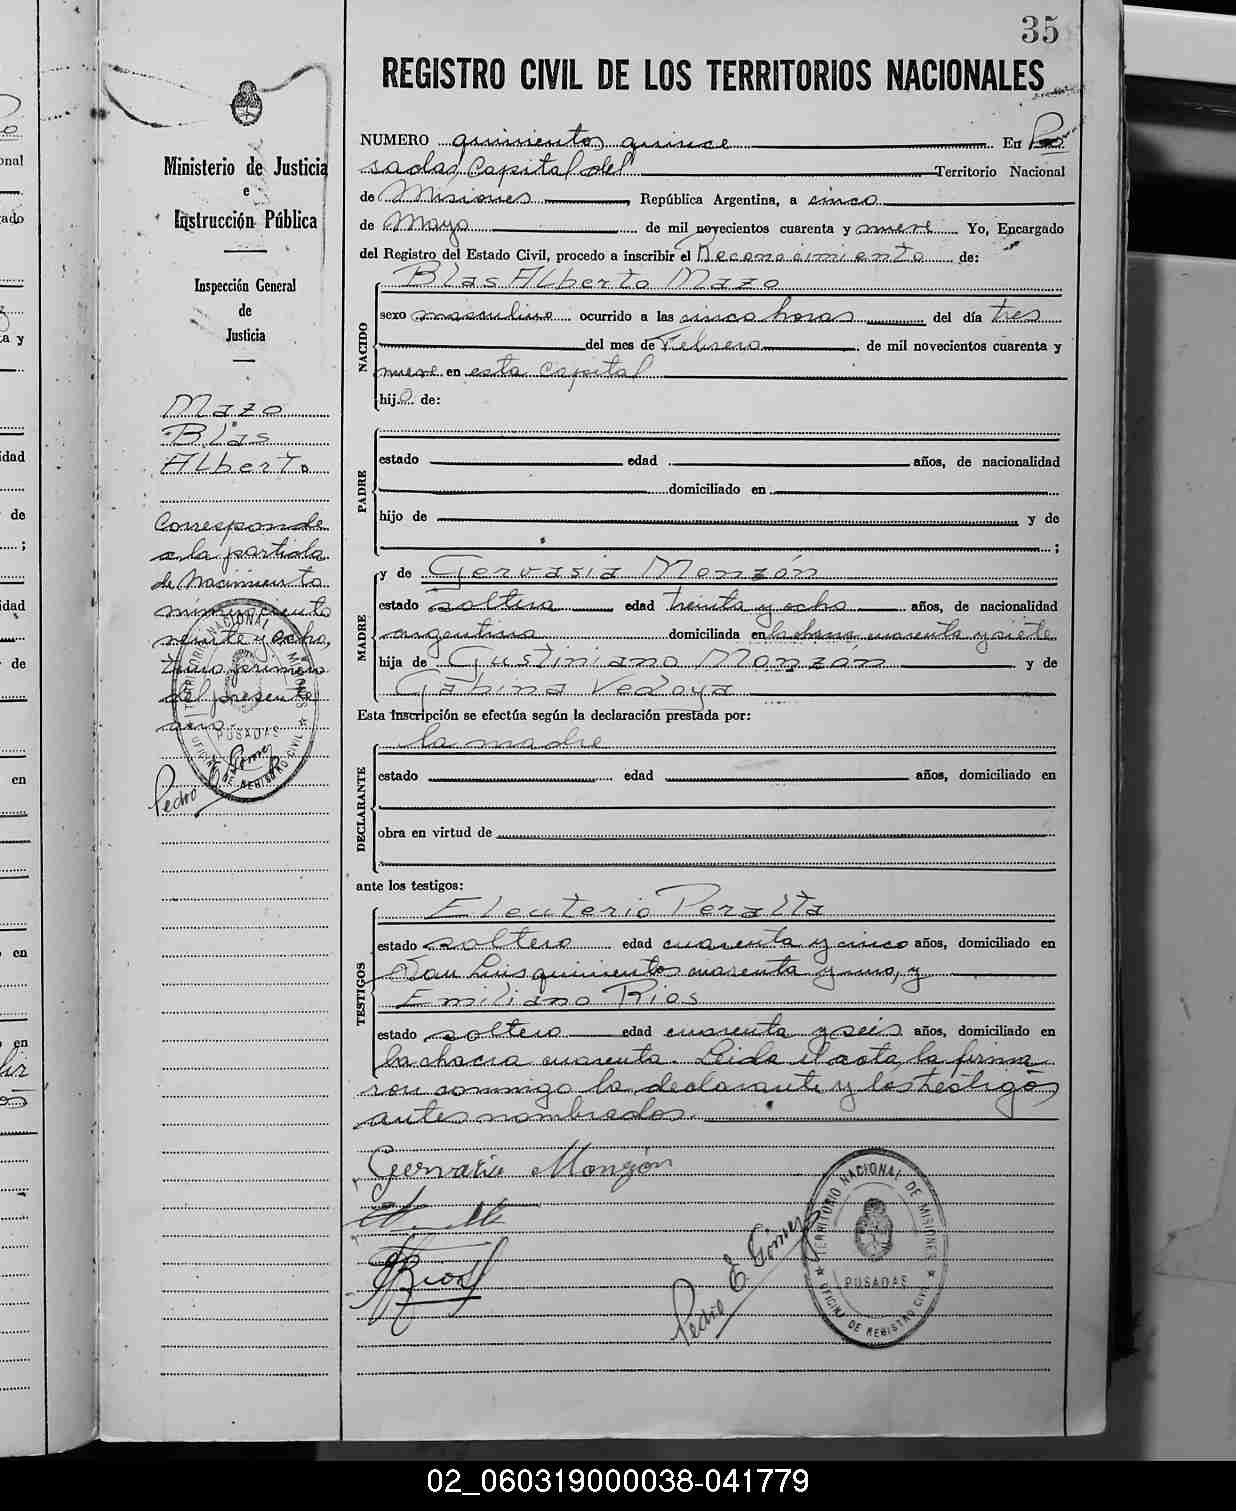 35
REGISTRO CIVIL DE LOS TERRITORIOS NACIONALES
Ministerio de Justicia
e
Instrucción Pública
Inspección General
de
Justicia
Mazo
Blas
Alberto
Corresponde
a la partida
de Nacimiento
ciento
veinte y ocho,
tomo primero
del presente
año.
Pedro E Gómez
TERRITORIO NACIONAL DE MISIONES
POSADAS
OFICINA DE REGISTRO CIVIL
NUMERO quinientos quince En Po
sadas Capital del Territorio Nacional
de Misiones, República Argentina, a cinco
de Mayo de mil novecientos cuarenta y nueve Yo, Encargado
del Registro del Estado Civil, procedo a inscribir el Reconocimiento de:
Blas Alberto Mazo
NACIDO
sexo masculino ocurrido a las cinco horas del día tres
del mes de Febrero de mil novecientos cuarenta y
nueve en esta Capital
hijo de:
PADRE
estado edad años, de nacionalidad
domiciliado en
hijo de y de
;
MADRE
y de Gervasia Monzón
estado soltera edad treinta y ocho años, de nacionalidad
argentina domiciliada en cuarenta y siete
hija de Gustiniano Monzón y de
Gabina Vedoya
Esta inscripción se efectúa según la declaración prestada por:
DECLARANTE
la madre
estado edad años, domiciliado en
obra en virtud de
ante los testigos:
TESTIGOS
Eleuterio Peralta
estado soltero edad cuarenta y cinco años, domiciliado en
San Luis quinientos cuarenta y uno, y
Emiliano Rios
estado soltero edad cuarenta y seis años, domiciliado en
la chacra cuarenta. Leida el acta, la firma
ron conmigo la declarante y los testigos
antes nombrados.
Gervasia Monzón
Rios
Pedro E Gómez
TERRITORIO NACIONAL DE MISIONES
POSADAS
OFICINA DE REGISTRO CIVIL
02_060319000038-041779